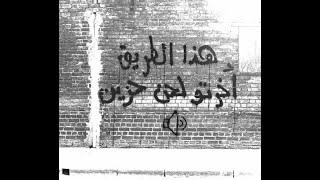 هذا الطريق
إخرتو لحن حزين